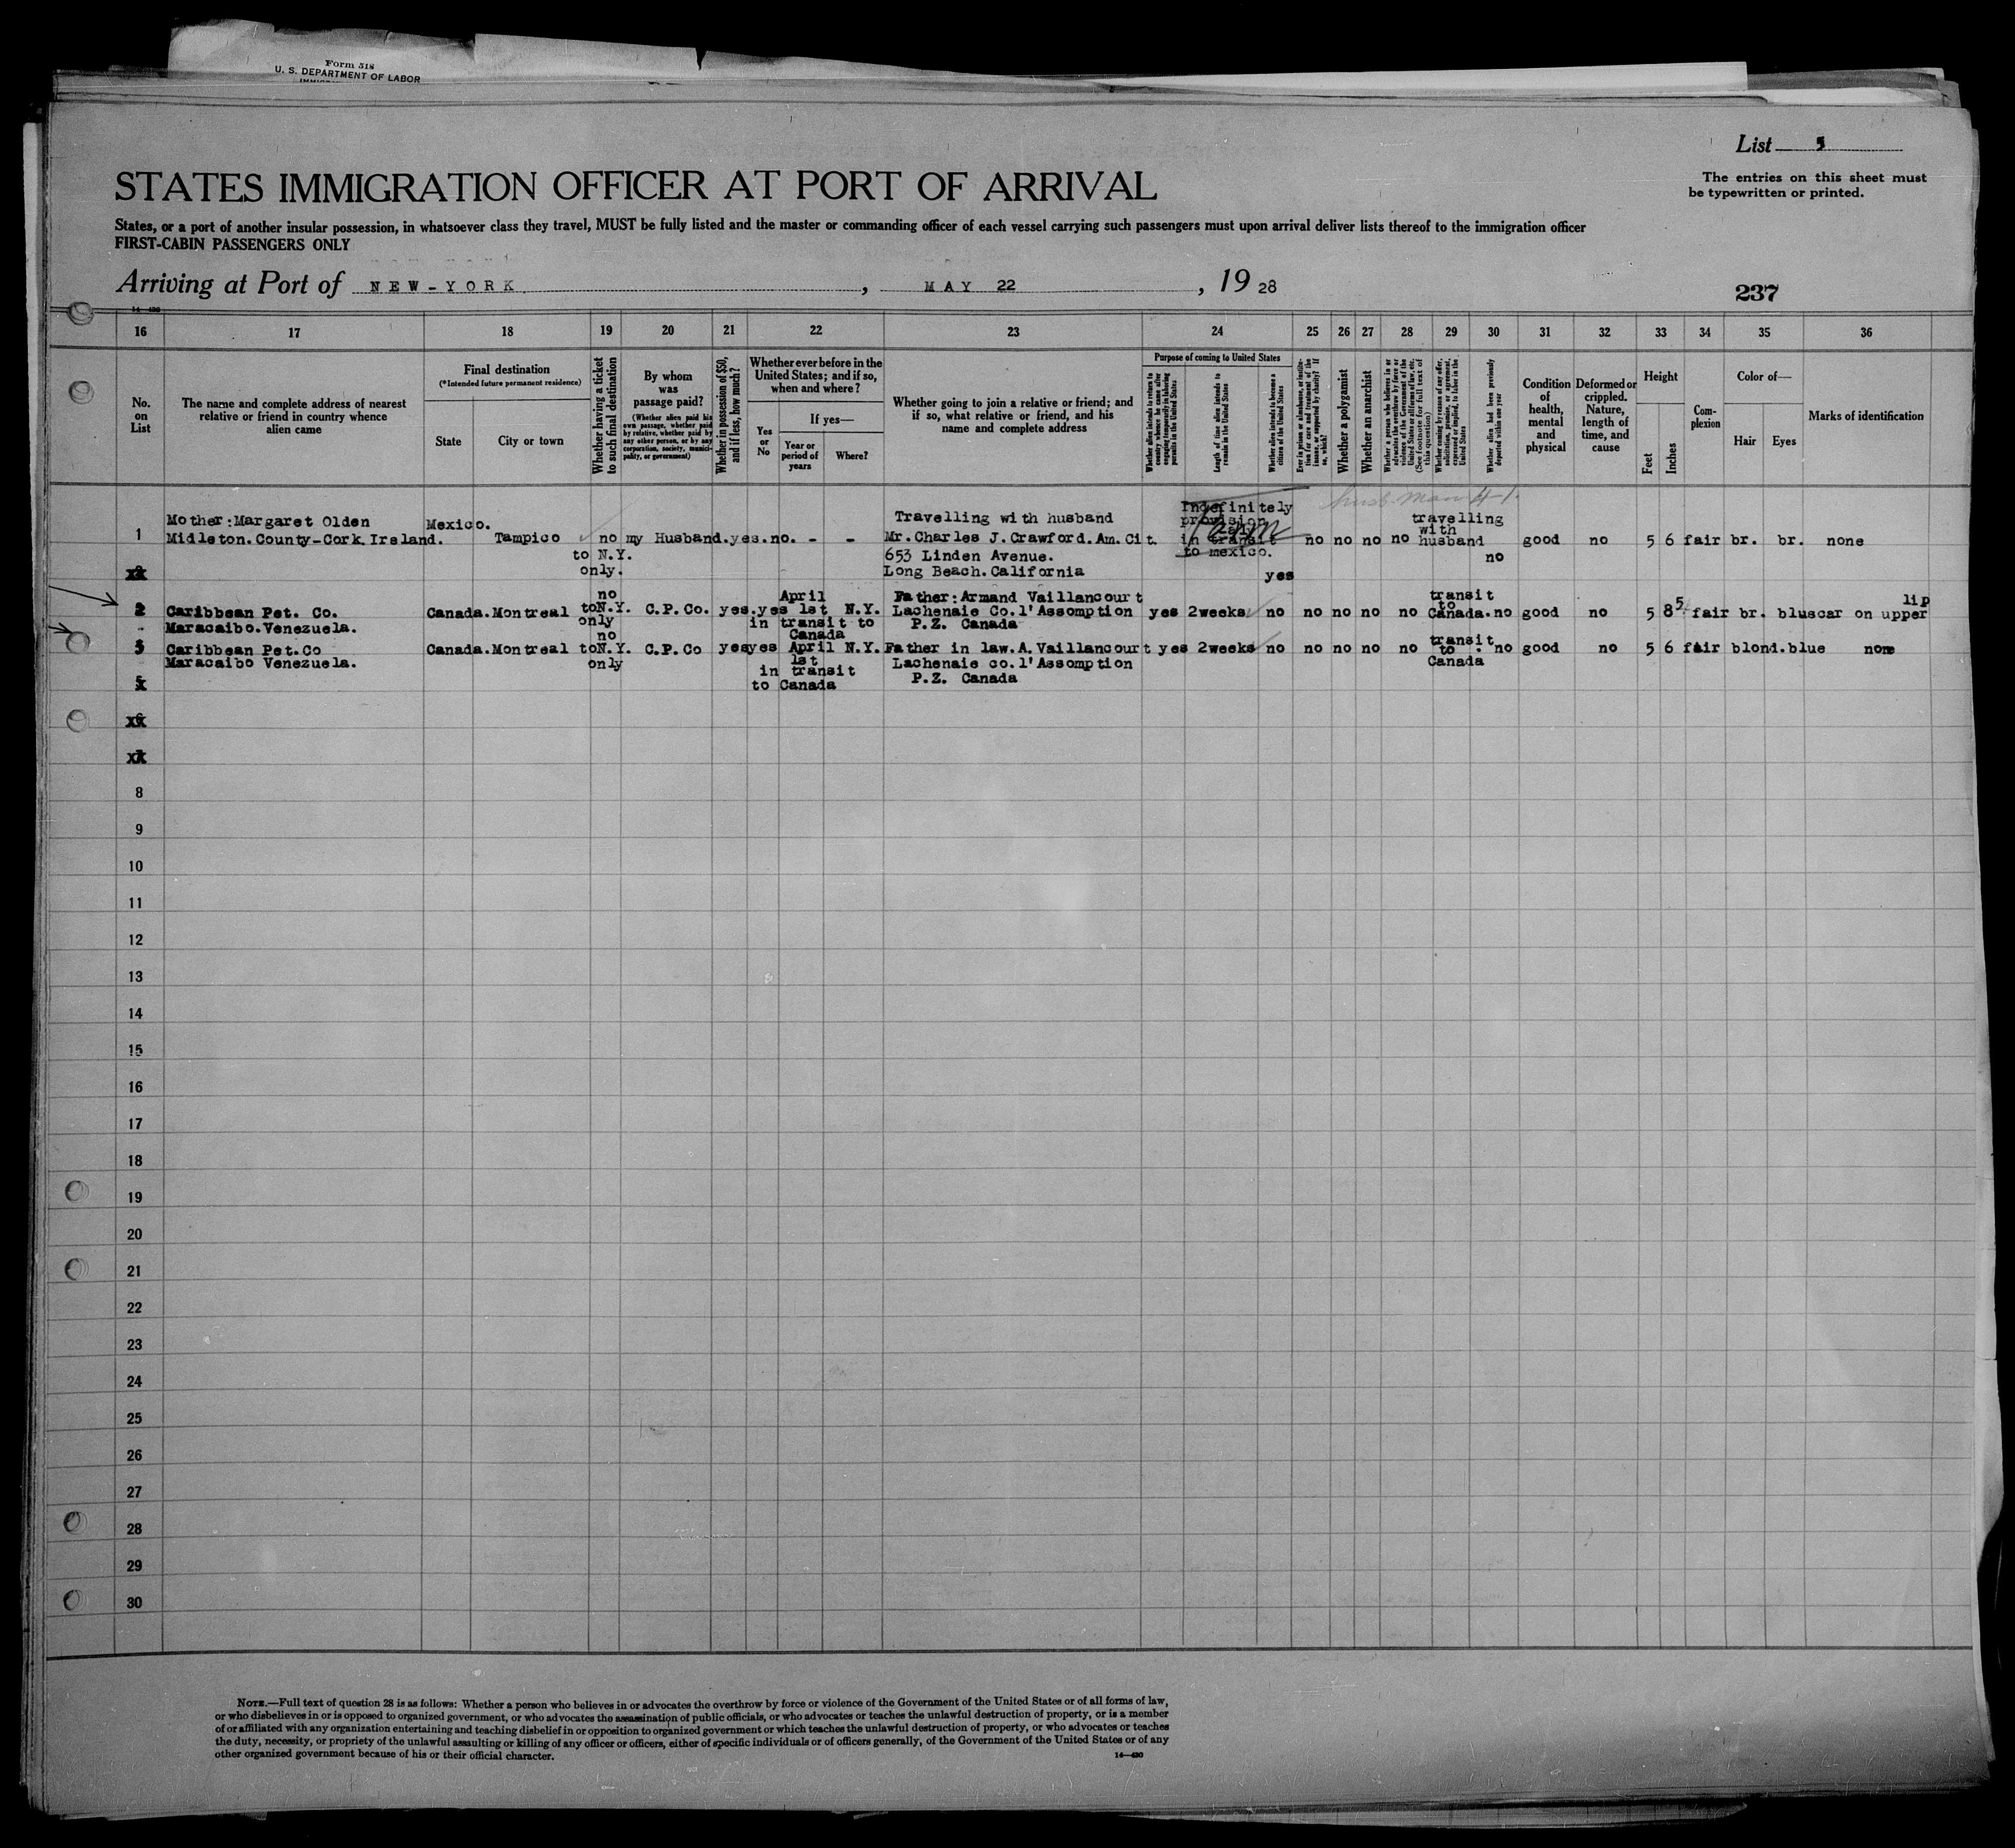 Form 518
U. S. DEPARTMENT OF LABOR
List 5
The entries on this sheet must
be typewritten or printed.
STATES IMMIGRATION OFFICER AT PORT OF ARRIVAL
States, or a port of another insular possession, in whatsoever class they travel, MUST be fully listed and the master or commanding officer of each vessel carrying such passengers must upon arrival deliver lists thereof to the immigration officer
FIRST-CABIN PASSENGERS ONLY
Arriving at Port of NEW-YORK, MAY 22, 19 28
237
16 17 18 19 20 21 22 23 24 25 26 27 28 29 30 31 32 33 34 35 36
No.
on
List
The name and complete address of nearest
relative or friend in country whence
alien came
Final destination
(*Intended future permanent residence)
State
City or town
Whether having a ticket
to such final destination
By whom
was
passage paid?
(Whether alien paid his
own passage, whether paid
by relative, whether paid by
any other person, or by any
corporation, society, munici-
pality, or government)
Whether in possession of $50,
and if less, how much?
Whether ever before in the
United States; and if so,
when and where?
Yes
or
No
If yes—
Year or
period of
years
Where?
Whether going to join a relative or friend; and
if so, what relative or friend, and his
name and complete address
Purpose of coming to United States
Whether alien intends to return to
country whence he came after
engaging temporarily in laboring
pursuits in the United States
Length of time alien intends to
remain in the United States
Whether alien intends to become a
citizen of the United States
Ever in prison or almshouse, or institu-
tion for care and treatment of the
insane, or supported by charity? If
so, which?
Whether a polygamist
Whether an anarchist
Whether a person who believes in or
advocates the overthrow by force or
violence of the Government of the
United States or all forms of law, etc.
(See footnote for full text of
this question)
Whether coming by reason of any offer,
solicitation, promise, or agreement,
expressed or implied, to labor in the
United States
Whether alien had been previously
deported within one year
Condition
of
health,
mental
and
physical
Deformed or
crippled.
Nature,
length of
time, and
cause
Height
Feet
Inches
Com-
plexion
Color of—
Hair
Eyes
Marks of identification
1
Mother:Margaret Olden
Midleton.County-Cork.Ireland.
Mexico.
Tampico
no
to N.Y.
only.
my Husband.
yes.
no. - -
Travelling with husband
Mr.Charles J.Crawford.Am.Cit.
653 Linden Avenue.
Long Beach.California
Indefinitely
in transit
to mexico.
yes
no no no no
travelling
with
husband
no
good no 5 6 fair br. br. none
2
Caribbean Pet. Co.
Maracaibo.Venezuela.
Canada.Montreal
no
toN.Y.
only
C.P.Co. yes.yes
April
1st N.Y.
in transit to
Canada
Father:Armand Vaillancourt
Lachenaie Co.l'Assomption
P.Z. Canada
yes 2weeks no no no no no
transit
to
Canada.
no good no 5 8 fair br. blu
scar on upper
lip
3
Caribbean Pet.Co
Maracaibo Venezuela.
Canada.Montreal
no
toN.Y.
only
C.P.Co yes yes
April N.Y.
1st
in transit
to Canada
Father in law.A.Vaillancourt
Lachenaie co.l'Assomption
P.Z. Canada
yes 2weeks no no no no no
transit
to
Canada
no good no 5 6 fair blond.blue none
8
9
10
11
12
13
14
15
16
17
18
19
20
21
22
23
24
25
26
27
28
29
30
NOTE.—Full text of question 28 is as follows: Whether a person who believes in or advocates the overthrow by force or violence of the Government of the United States or of all forms of law,
or who disbelieves in or is opposed to organized government, or who advocates the assassination of public officials, or who advocates or teaches the unlawful destruction of property, or is a member
of or affiliated with any organization entertaining and teaching disbelief in or opposition to organized government or which teaches the unlawful destruction of property, or who advocates or teaches
the duty, necessity, or propriety of the unlawful assaulting or killing of any officer or officers, either of specific individuals or of officers generally, of the Government of the United States or of any
other organized government because of his or their official character.
14—430